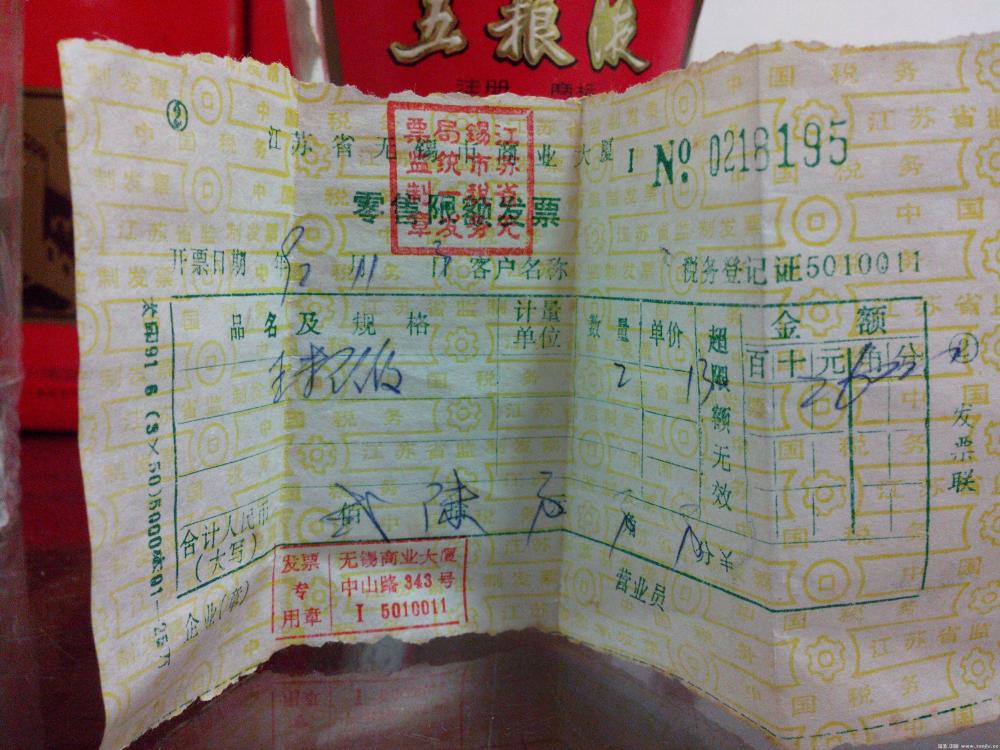 五粮液
注册 商标
②
江苏省无锡市商业大厦 I No. 0218195
江苏省无
锡市税务
局统一发
票监制章
零售限额发票
开票日期 年 月 日 客户名称 税务登记证5010011
92 11 3
品名及规格 计量单位 数量 单价 超限额无效 金额
百 十 元 角 分
2 13
合计人民币
(大写)
佰 贰 陆 元 角 分 ¥
② 发票联
企业(章) 营业员
发票专用章
无锡商业大厦
中山路 343 号
I 5010011